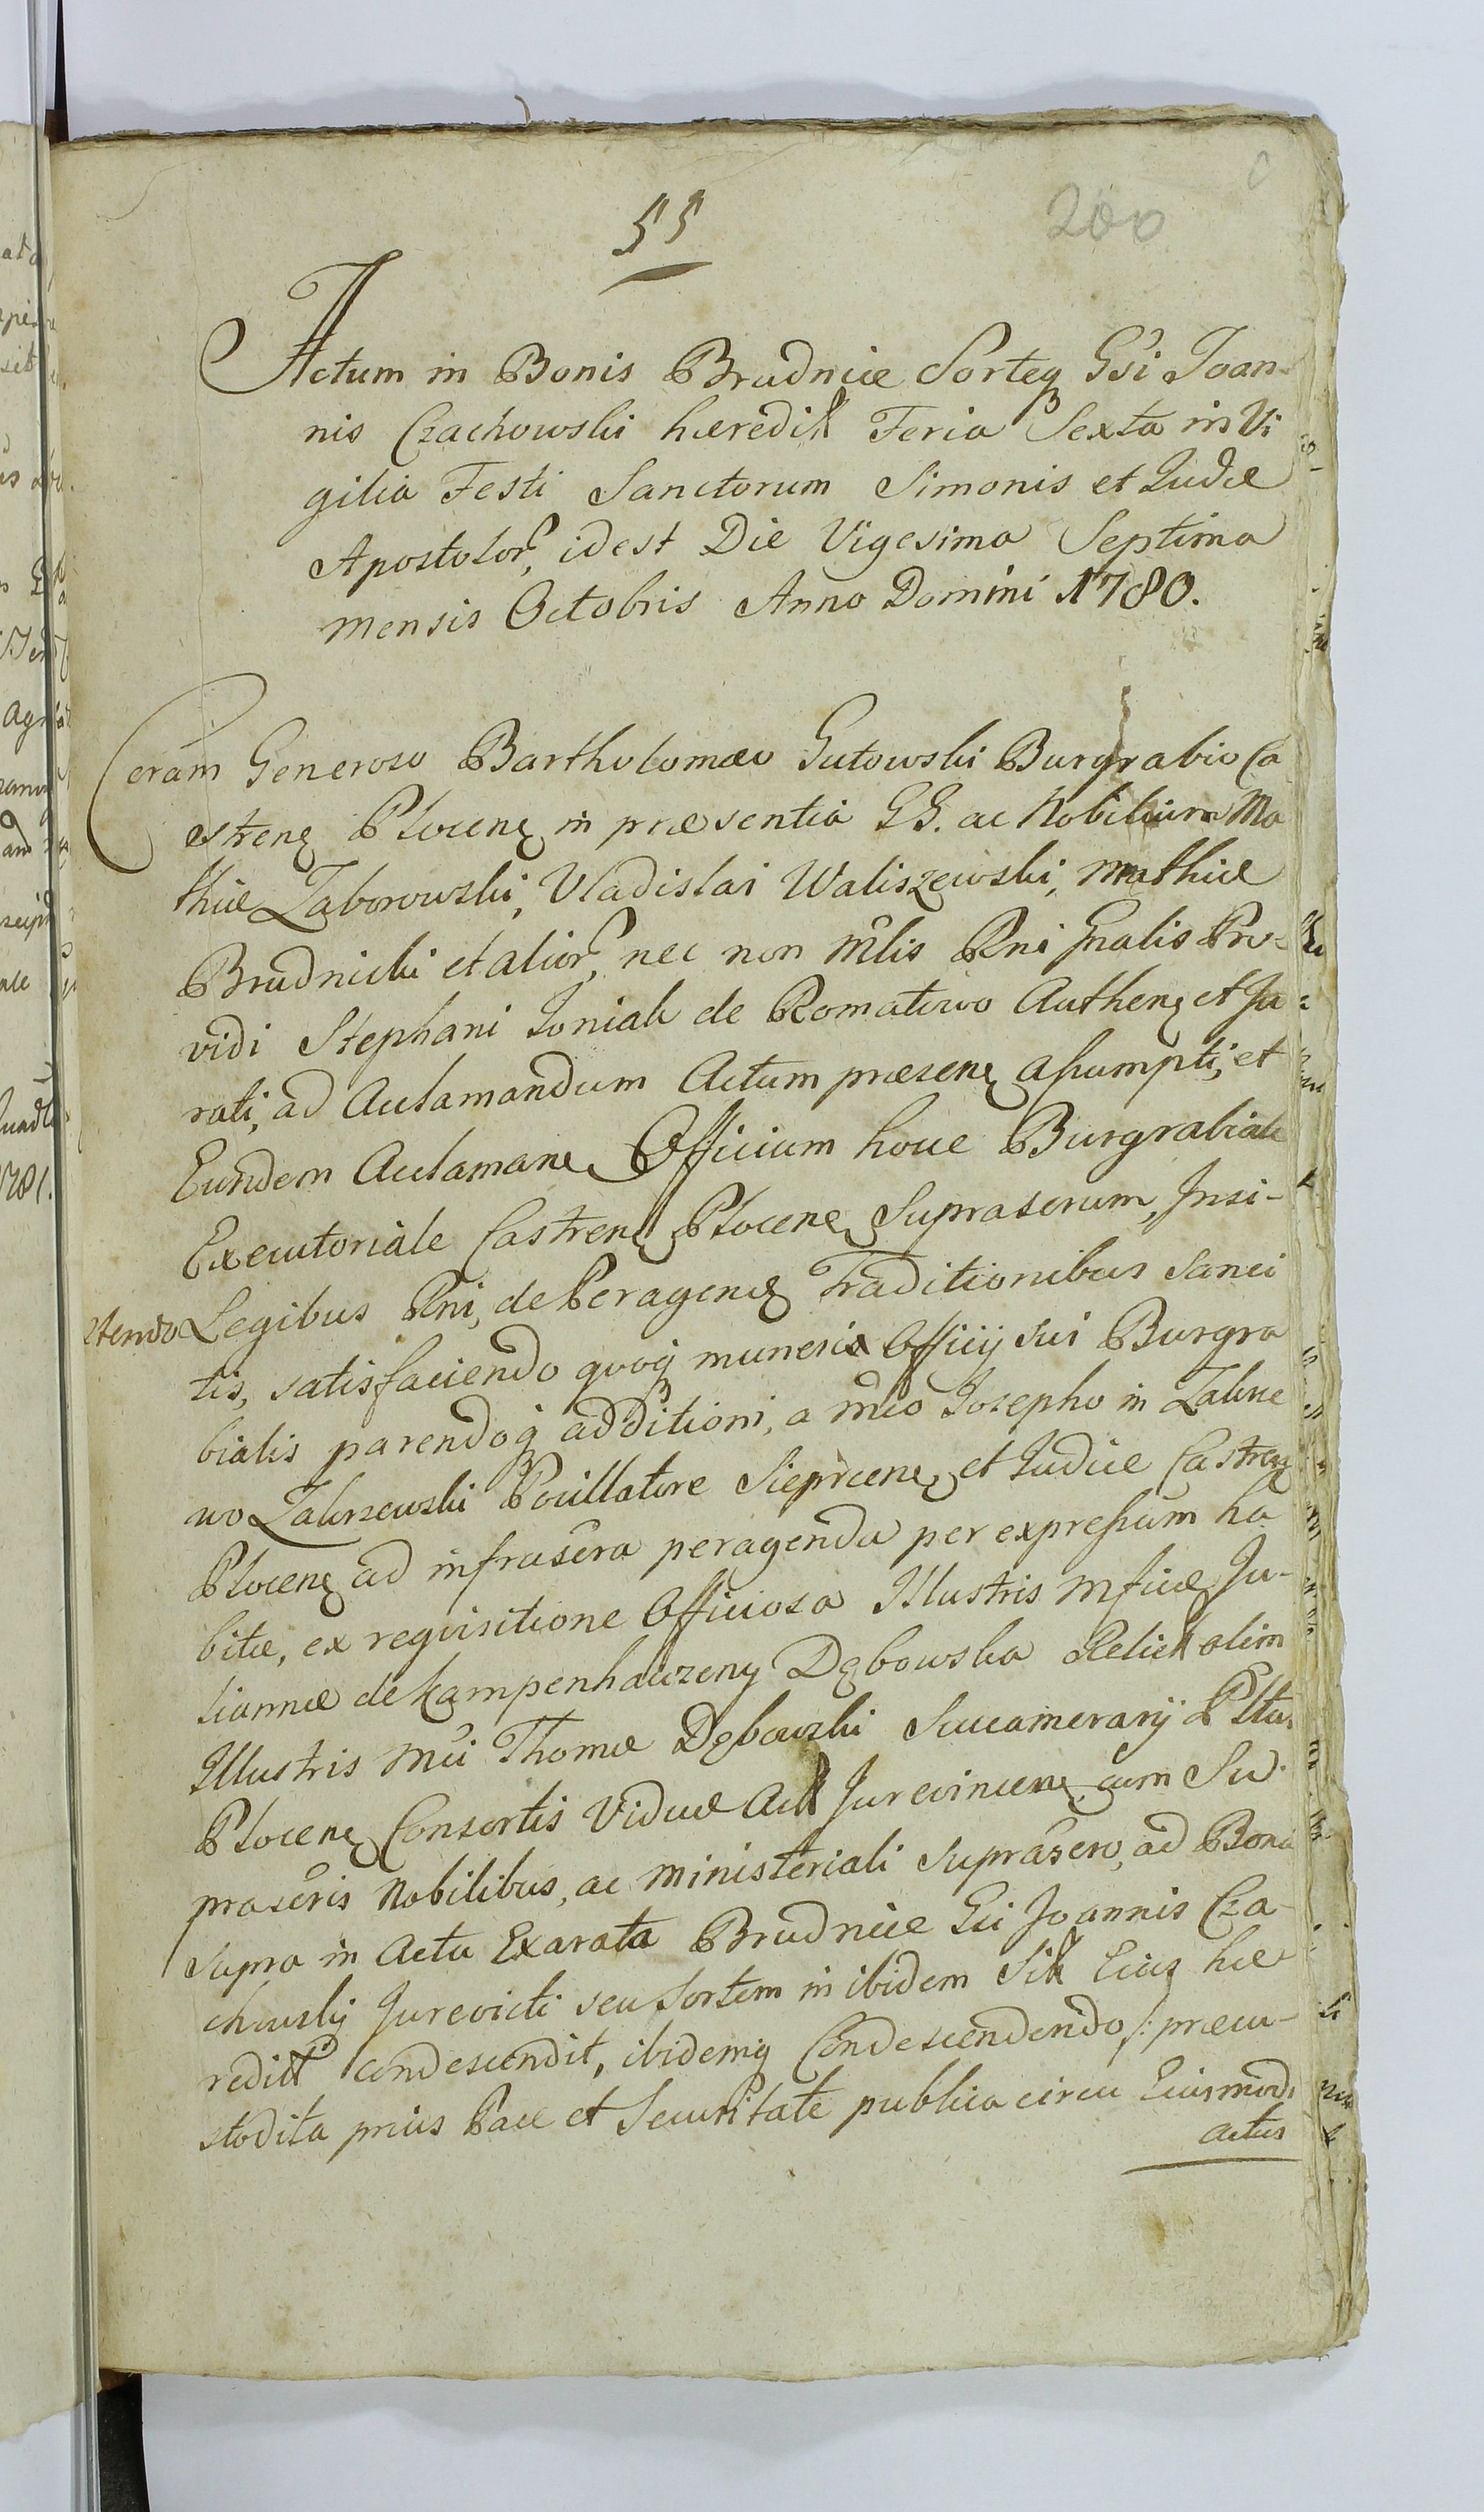 55
200
Actum in Bonis Brudnice Sorteq Gsi Joan-
nis Czachowski hæredit Feria Sexta in Vi
gilia Festi Sanctorum Simonis et Judæ
Apostolor, idest Die Vigesima Septima
mensis Octobris Anno Domini 1780.
Coram Generoso Bartholomæo Gutowski Burgrabio Ca
strenȩ Plocenȩ in præsentia GG. ac Nobilium Ma
thiæ Zaborowski, Vladislai Waliszewski, Mathiæ
Brudnicki et alior, nec non mlis Rni Gnalis Pro-
vidi Stephani Joniak de Romatowo Authenȩ et Ju
rati, ad Aclamandum Actum præsenȩ assumpti, et
Eundem Aclamanȩ Officium hocce Burgrabiale
Executoriale Castrenȩ Plocenȩ Suprascrum, Insi-
stendo Legibus Rni, de Peragenȩ Traditionibus Sanci
tis, satisfaciendo quoq muneris Officij sui Burgra
bialis parendoq additioni, a mco Josepho in Zakrze
wo Zakrzewski Pocillatore Sieprcenȩ et Judice Castrenȩ
Plocenȩ ad infrascra peragenda per expressum ha
bitæ, ex requisitione Officiosa Illustris Mficæ Ju-
liannæ de Kampenhauzeny Dębowska Relict olim
Illustris Mci Thomæ Dębowski Succamerarij Pltus
Plocenȩ Consortis Viduæ Act Jurevincenȩ, cum Su-
prascris Nobilibus, ac ministeriali suprascro, ad Bona
supra in Actu Exarata Brudnice Gsi Joannis Cza-
chowskij Jurevicti seu Sortem in ibidem Sit Eius hæ
redit condescendit, ibidemq Condescendendo /: præcu-
stodita prius Pace et Securitate publica circa Eiusmodi
actus